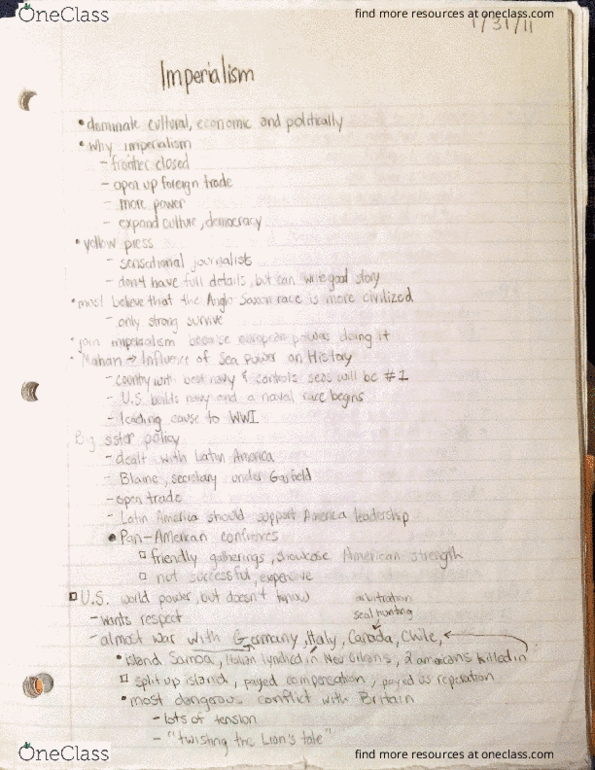 OneClass
find more resources at oneclass.com
1/31/11
Imperialism
• dominate cultural, economic and politically
• Why imperialism
- frontier closed
- open up foreign trade
- more power
- expand culture, democracy
• yellow press
- sensational journalists
- don't have full details, but can write good story
• most believe that the Anglo Saxon race is more civilized
- only strong survive
• join imperialism because european powers doing it
• Mahan → Influence of Sea Power on History
- country with best navy & controls seas will be #1
- U.S. builds navy and a naval race begins
- leading cause to WWI
Big sister policy
- dealt with Latin America
- Blaine, secretary under Garfield
- open trade
- Latin America should support America leadership
• Pan-American confrences
□ friendly gatherings, showcase American strength
□ not successful, expensive
□ U.S. world power, but doesn't know
arbitration
- wants respect
seal hunting
- almost war with Germany, Italy, Canada, Chile,
• island Samoa, Italian lynched in New Orleans, 2 americans killed in
□ split up island, payed compensation, payed as reparation
• most dangerous conflict with Britain
- lots of tension
- "twisting the Lion's tale"
OneClass
find more resources at oneclass.com